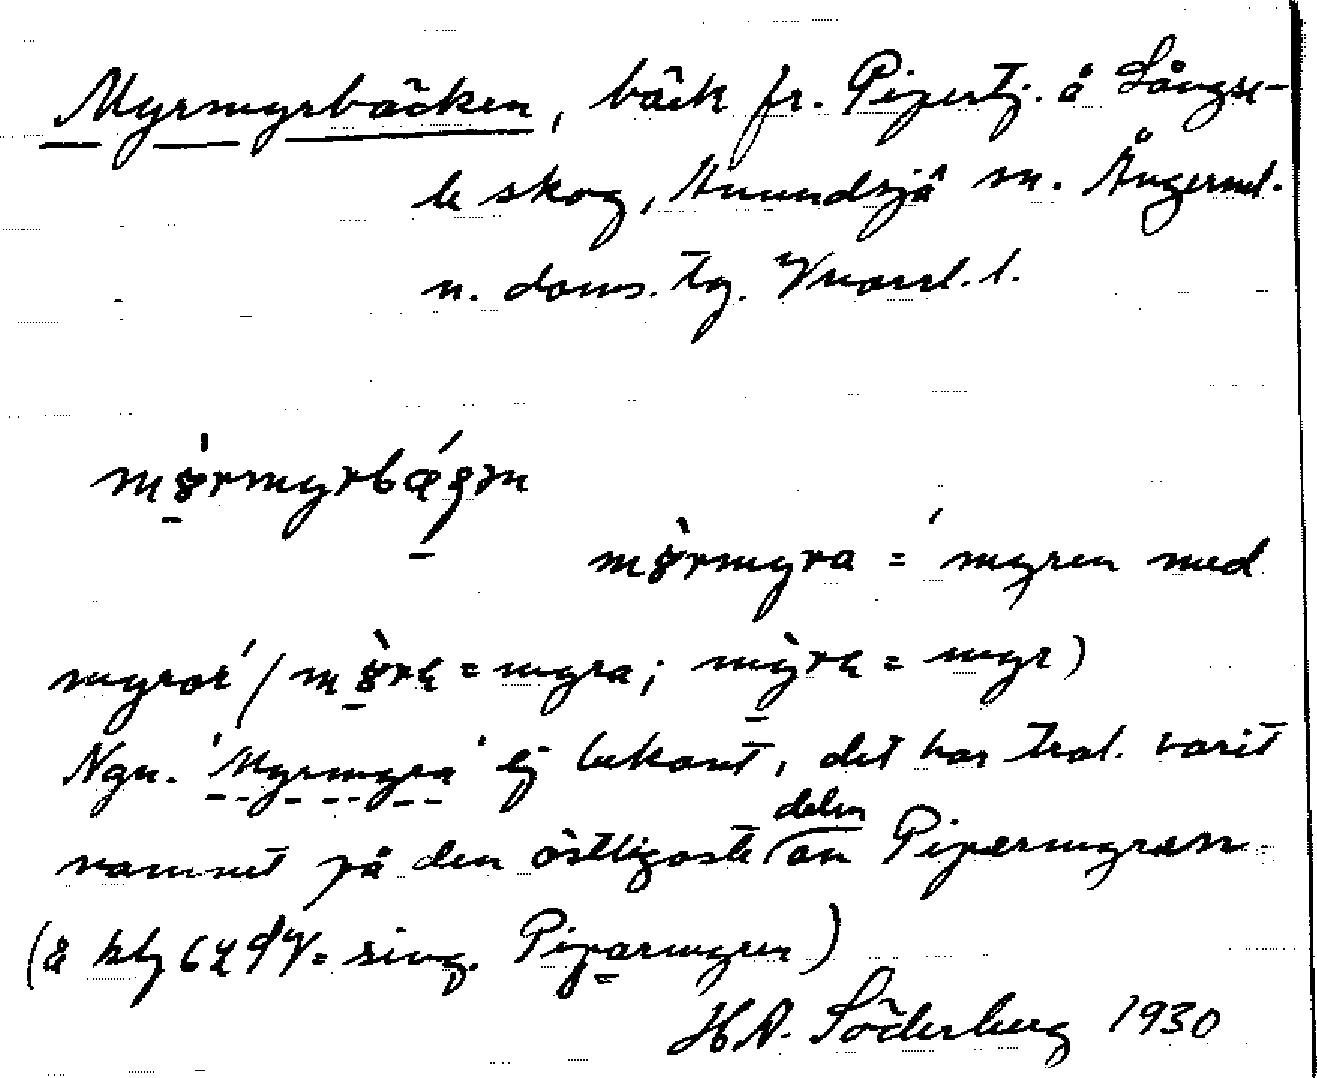 Myrmyrbäcken, bäck fr. Pipertj. å Långse-
le skog, Anundsjö sn. Ångerml.
n. doms. tg. Vnorrl. l.
myrmyrbäken
myrmyra = 'myren med
myror' (myre = myra; myre = myr)
Ngn. 'Myrmyra' ej bekant, det har trol. varit
namnet på den östligaste delen av Pipermyran.
(å kbl 62 sing. Piparmyren)
H.A. Söderberg 1930